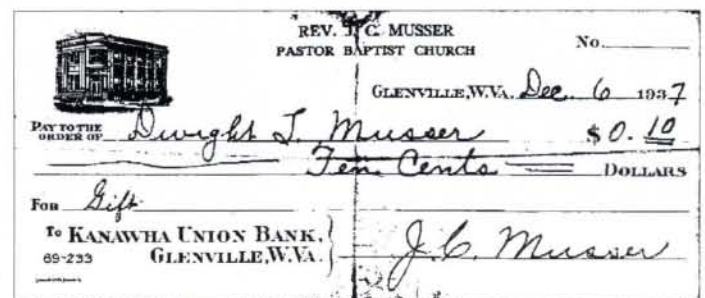 REV. J. C. MUSSER
PASTOR BAPTIST CHURCH
No.
GLENVILLE, W.VA. Dec. 6 1937
PAY TO THE ORDER OF Dwight L. Musser $0.10
Ten Cents DOLLARS
FOR Gift
To KANAWHA UNION BANK,
69-233 GLENVILLE, W.VA.
J.C. Musser